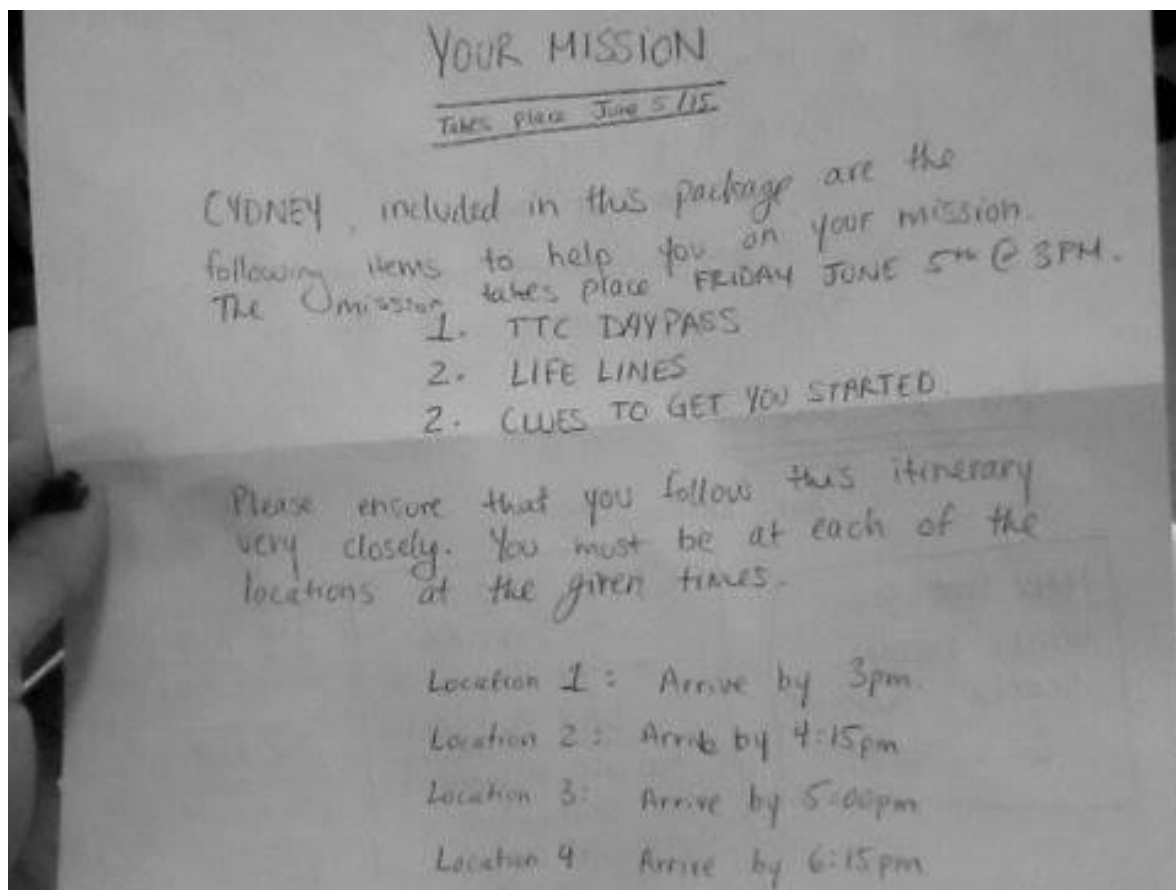 YOUR MISSION
Takes place June 5/15
CYDNEY, included in this package are the
following items to help you on your mission.
The mission takes place FRIDAY JUNE 5th @ 3PM.
1. TTC DAYPASS
2. LIFE LINES
2. CLUES TO GET YOU STARTED
Please ensure that you follow this itinerary
very closely. You must be at each of the
locations at the given times.
Location 1: Arrive by 3pm.
Location 2: Arrive by 4:15pm
Location 3: Arrive by 5:00pm
Location 4 Arrive by 6:15pm